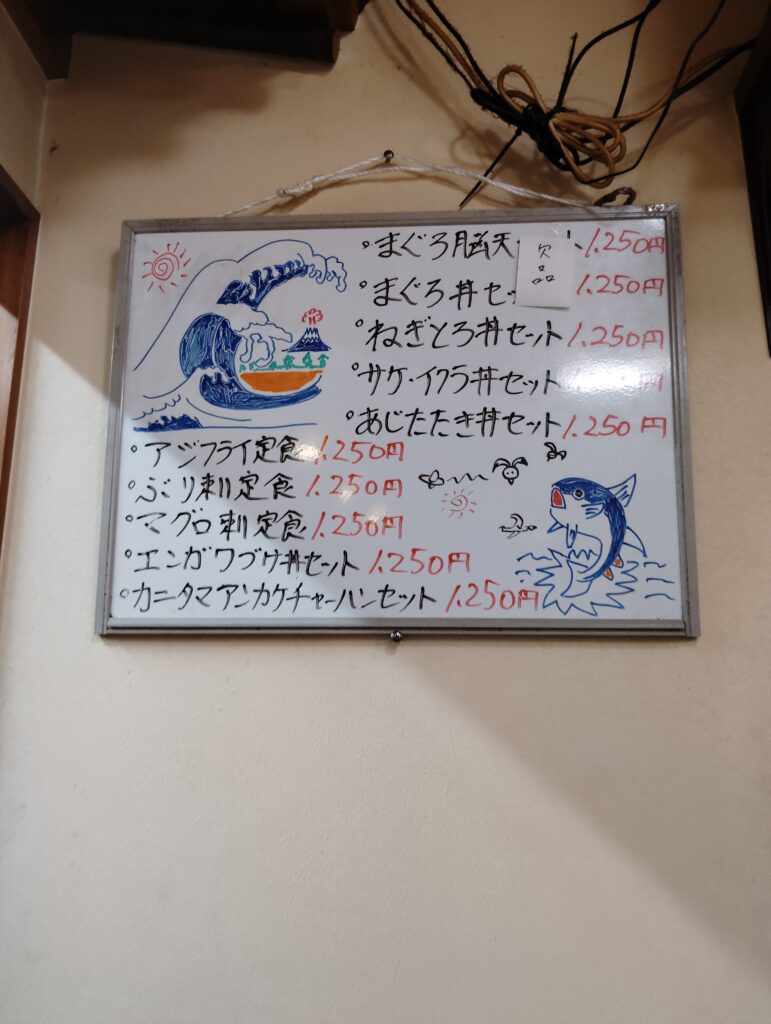 まぐろ脳天 ット 1.250円
欠品
まぐろ丼セッ 1.250円
ねぎとろ丼セット 1.250円
サケ・イクラ丼セット
あじたたき丼セット 1.250円
アジフライ定食 1.250円
ぶり刺定食 1.250円
マグロ刺定食 1.250円
エンガワづケ丼セット 1.250円
カニタマアンカケチャーハンセット 1.250円